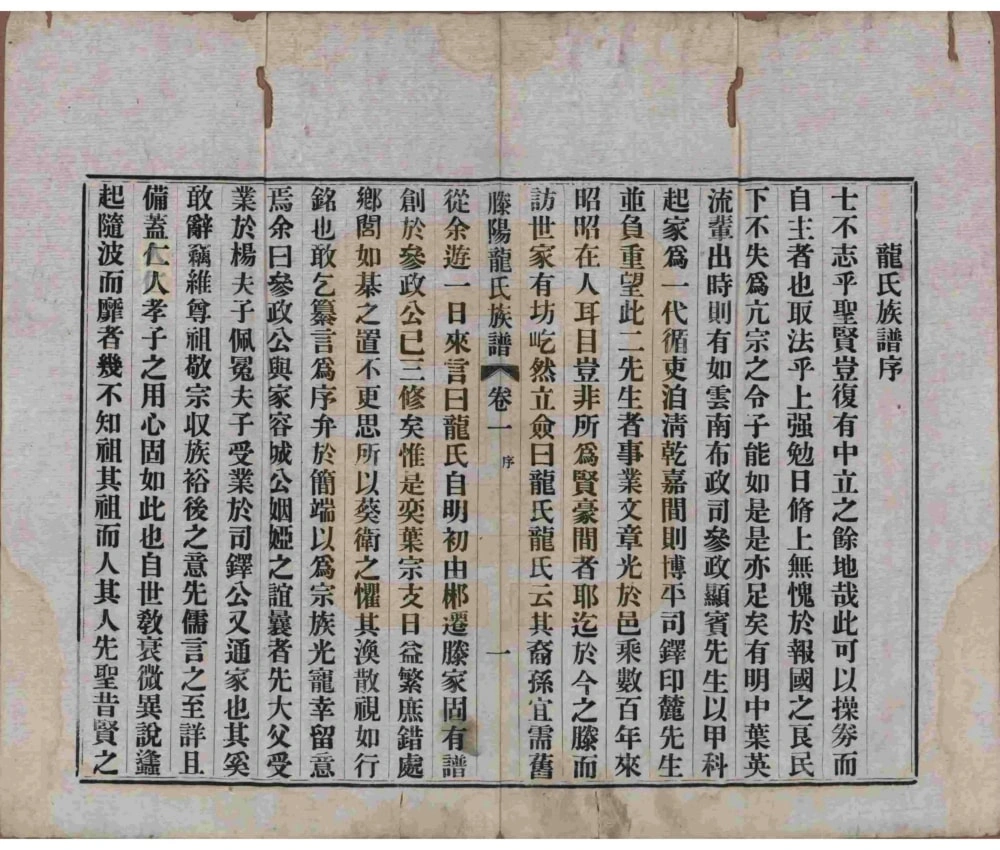 龍氏族譜序
士不志乎聖賢豈復有中立之餘地哉此可以操劵而
自主者也取法乎上强勉日脩上無愧於報國之良民
下不失爲亢宗之令子能如是是亦足矣有明中葉英
流輩出時則有如雲南布政司參政顯賓先生以甲科
起家爲一代循吏洎淸乾嘉間則博平司鐸印麓先生
並負重望此二先生者事業文章光於邑乘數百年來
昭昭在人耳目豈非所爲賢豪間者耶迄於今之滕而
訪世家有坊屹然立僉曰龍氏龍氏云其裔孫宜需舊
滕陽龍氏族譜 卷一 序 一
從余遊一日來言曰龍氏自明初由郴遷滕家固有譜
創於參政公已三修矣惟是奕葉宗支日益繁庶錯處
鄉閭如棊之置不更思所以葵衛之懼其渙散視如行
銘也敢乞纂言爲序弁於簡端以爲宗族光寵幸留意
焉余曰參政公與家容城公姻婭之誼曩者先大父受
業於楊夫子佩冕夫子受業於司鐸公又通家也其奚
敢辭竊維尊祖敬宗収族裕後之意先儒言之至詳且
備蓋仁人孝子之用心固如此也自世敎衰微異說蠭
起隨波而靡者幾不知祖其祖而人其人先聖昔賢之